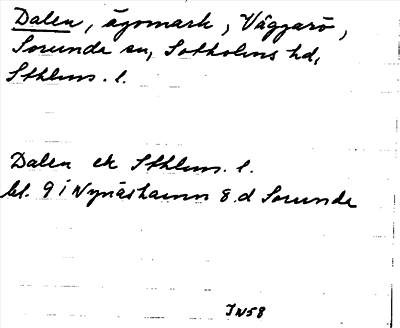 Dalen, ägomark, Väggarö,
Sorunda sn, Sotholms hd,
Sthlms. l.
Dalen ek Sthlms. l.
bl. 9 i Nynäshamn 8.d Sorunda
IN58